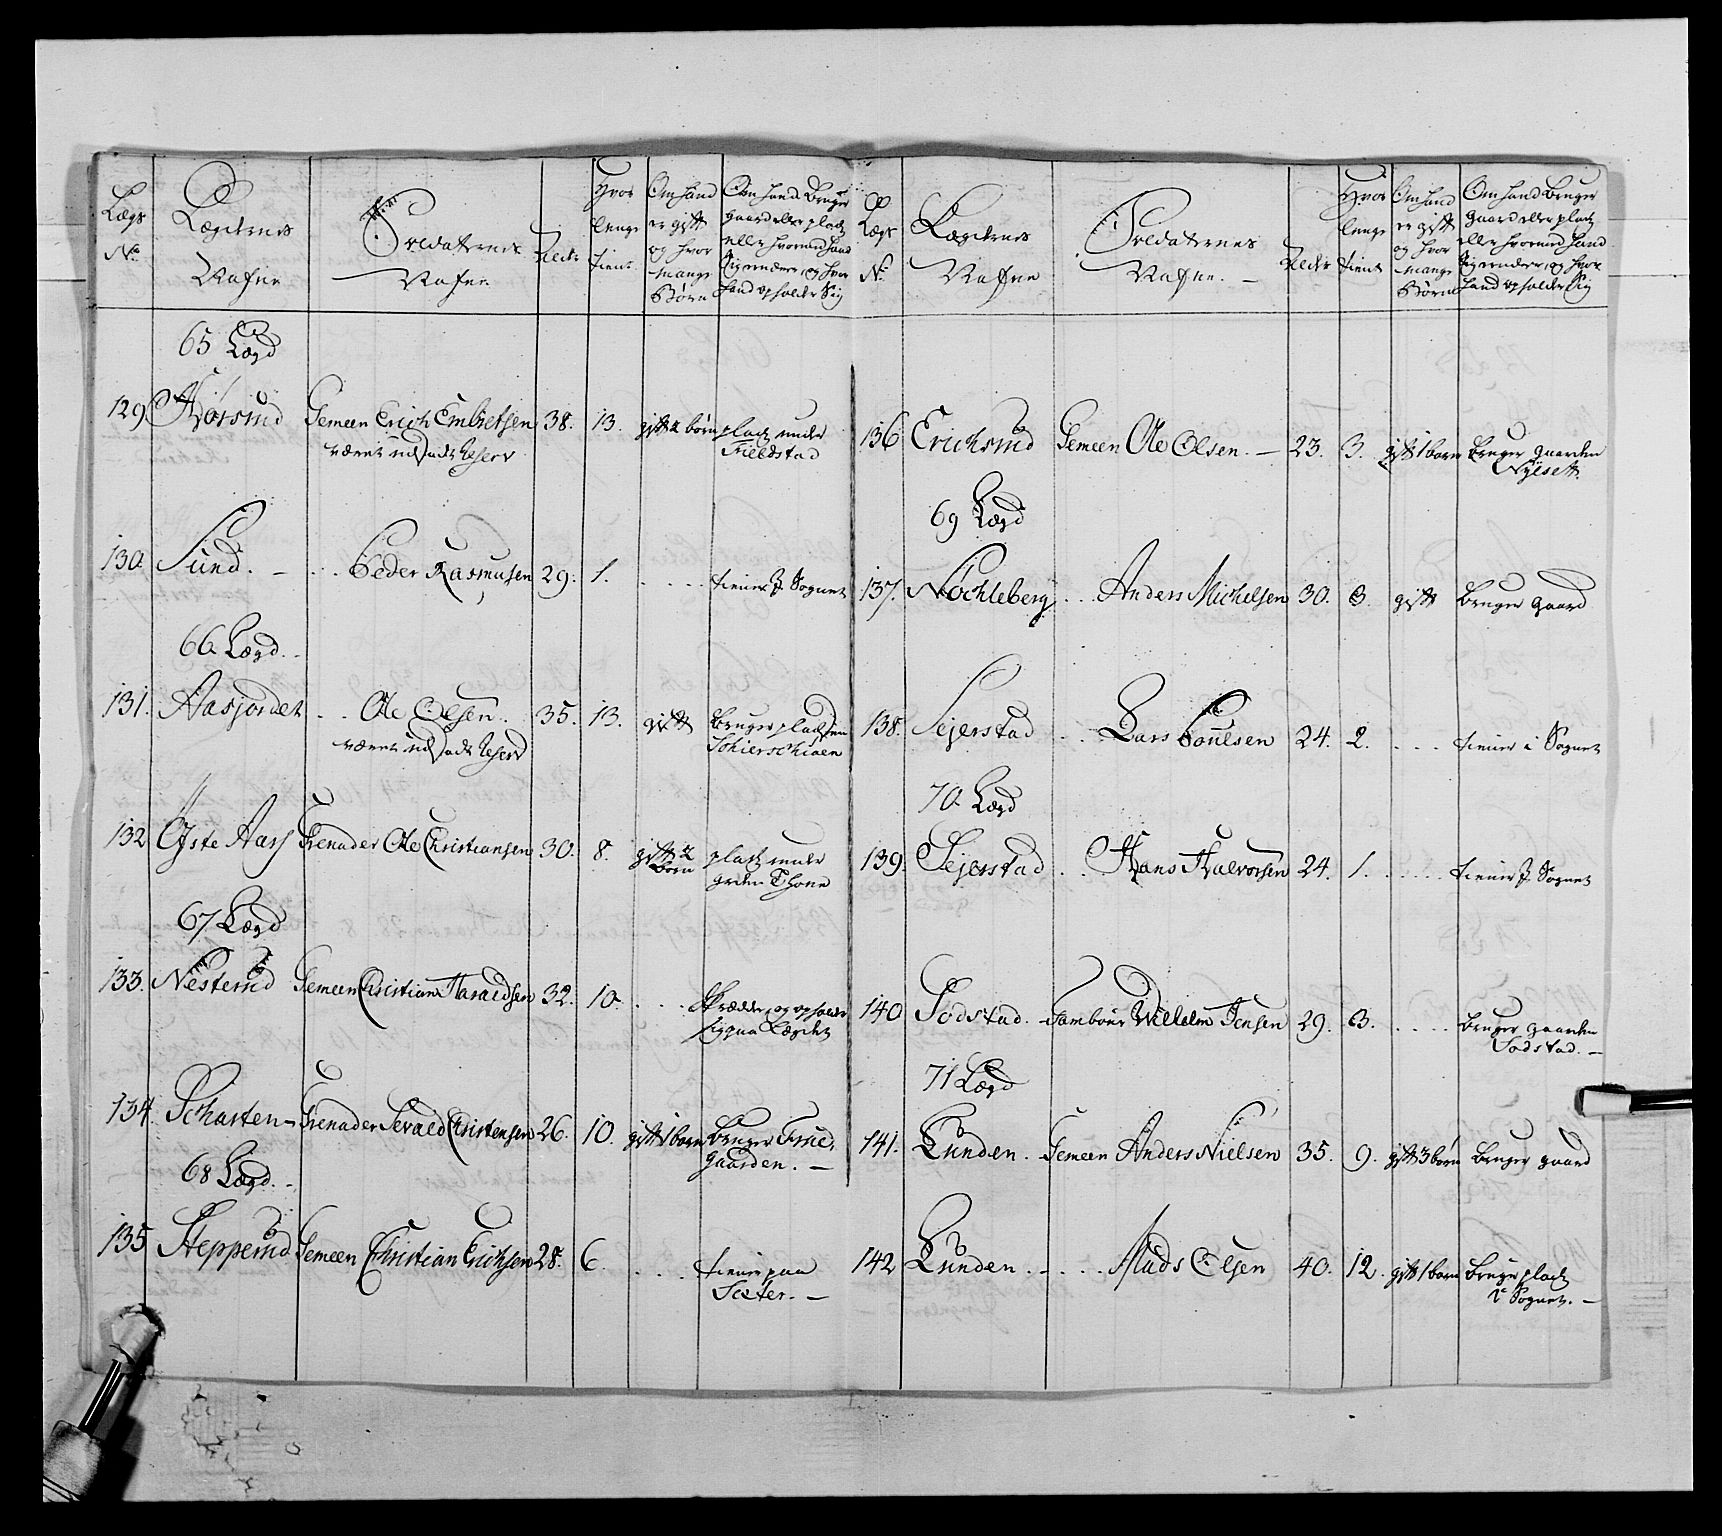 Lægs
No
Lægdernes
Nafne
Soldaternes
Nafne
Alder
Hvor
lenge
tient
Om hand
er gift
og hvor
mange
Børn
Om hand Bruger
gaard eller plads
eller hvormed hand
Sig ernærer, og hvor
hand opholder Sig
65 Lægd
129 Hørsrud Gemeen Erich Embretsen 38. 13. gift 2 børn plads under
været udj Reserv Fieldstad
130. Sund. - . . . Peder Rasmusen 29. 1. . . . . tiener J Sognet
66 Lægd. -
131. Aasjordet . . Ole Olsen. 35. 13. gift Bruger pladsen
været Reserv
132 Øfste Aass Grenader Ole Christiansen 30. 8. gift 2 plads under
Børn Thone
67 Lægd
133. Nesterud Gemeen Christian Haraldsen 32. 10. . . . Skrædder, og opholder
sig paa Lægdet
134. Scharten - Grenader Christensen 26. 10. gift 1 barn Bruger
gaarden. -
68 Lægd. -
135 Stepperud Gemeen Christian Erichsen 28. 6. . . . tiener paa
-
Lægs
No
Lægdernes
Nafne
Soldaternes
Nafne. -
Alder
Hvor
lenge
tient
Om hand
er gift
og hvor
mange
Børn
Om hand Bruger
gaard eller plads
eller hvormed hand
Sig ernærer, og hvor
hand opholder Sig
136 Erichsrud Gemeen Ole Olsen. - 23. 3. gift 1 barn Bruger gaarden
Nyeset.
69 Lægd
137. Nøchleberg . . . Anders Michelsen 30. 3. gift Bruger gaard
138. Sejerstad . . . Lars Poulsen 24. 2. . . . . tiener i Sognet
70. Lægd
139. Sejerstad . . Hans Halvorsen 24. 1. . . . . tiener J Sognet
140 Sodstad. - Tambour Willelm Jensen 29. 3. . . . . Bruger gaarden
Sodstad. -
71 Lægd
141. Lunden. - Gemeen Anders Nielsen 35. 9. gift 3 børn Bruger gaard
142 Lunden. - . . . Mads Olsen 40. 12. gift 1 barn Bruger plads
i Sognet. -